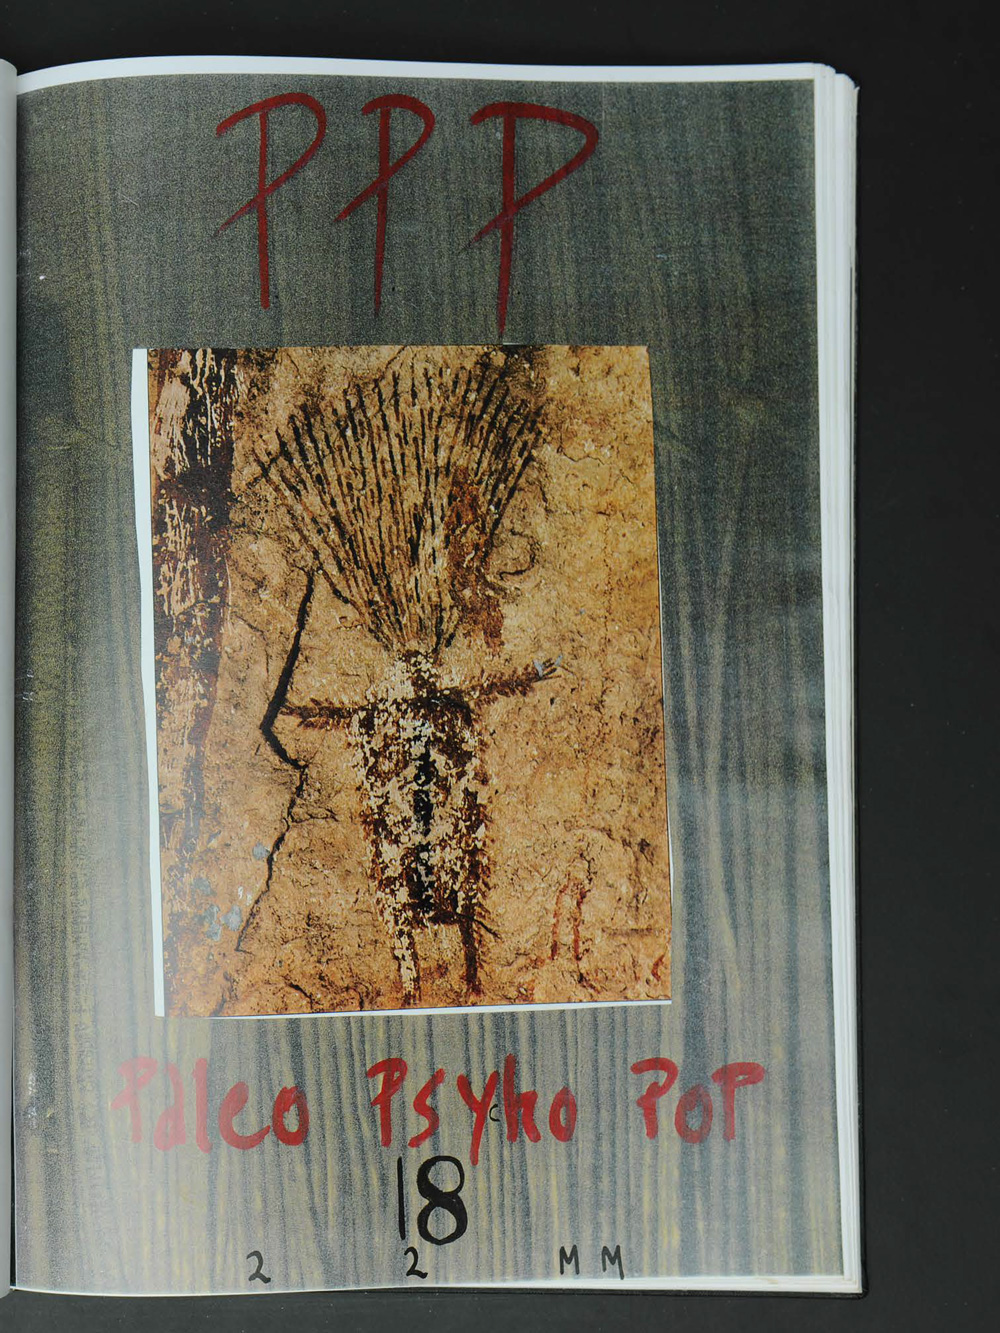 PPP
Paleo Psycho PoP
18
2 2 M M